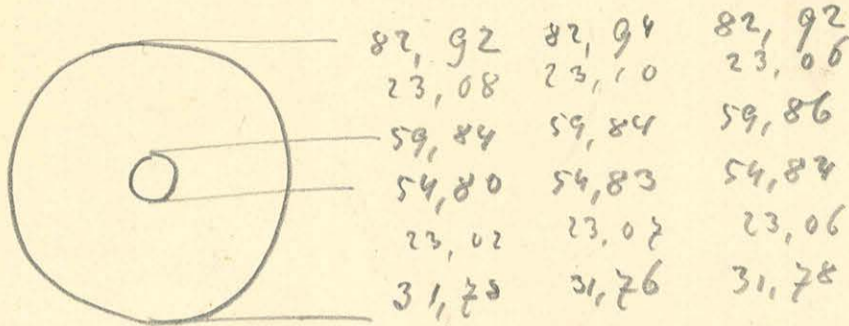 82,92 82,94 82,92
23,08 23,10 23,06
59,84 59,84 59,86
54,80 54,83 54,84
23,02 23,07 23,06
31,78 31,76 31,78